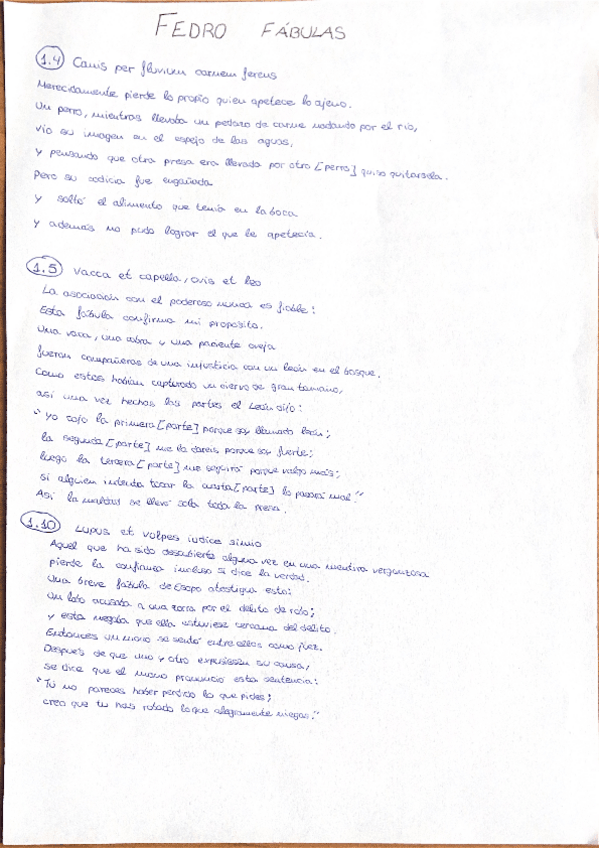 FEDRO FÁBULAS
1.4 Canis per fluvium carnem ferens
Merecidamente pierde lo propio quien apetece lo ajeno.
Un perro, mientras llevaba un pedazo de carne nadando por el río,
vio su imagen en el espejo de las aguas,
y pensando que otra presa era llevada por otro [perro] quiso quitársela.
Pero su codicia fue engañada
y soltó el alimento que tenía en la boca
y además no pudo lograr el que le apetecía.
1.5 Vacca et capella, ovis et leo
La asociación con el poderoso nunca es fiable:
Esta fábula confirma mi propósito.
Una vaca, una cabra y una paciente oveja
fueron compañeras de una injusticia con un león en el bosque.
Como estos habían capturado un ciervo de gran tamaño,
así una vez hechas las partes el León dijo:
"Yo cojo la primera [parte] porque soy llamado león;
la segunda [parte] me la daréis porque soy fuerte;
luego la tercera [parte] me seguirá porque valgo más;
si alguien intenta tocar la cuarta [parte] lo pasará mal."
Así la maldad se llevó sola toda la presa.
1.10 Lupus et vulpes iudice simio
Aquel que ha sido descubierto alguna vez en una mentira vergonzosa
pierde la confianza incluso si dice la verdad.
Una breve fábula de Esopo atestigua esto:
Un lobo acusaba a una zorra por el delito de robo;
y esta negaba que ella estuviese cercana del delito.
Entonces un mono se sentó entre ellos como juez.
Después de que uno y otro expusiesen su causa,
se dice que el mono pronunció esta sentencia:
"Tú no pareces haber perdido lo que pides;
creo que tu has robado lo que alegremente niegas."